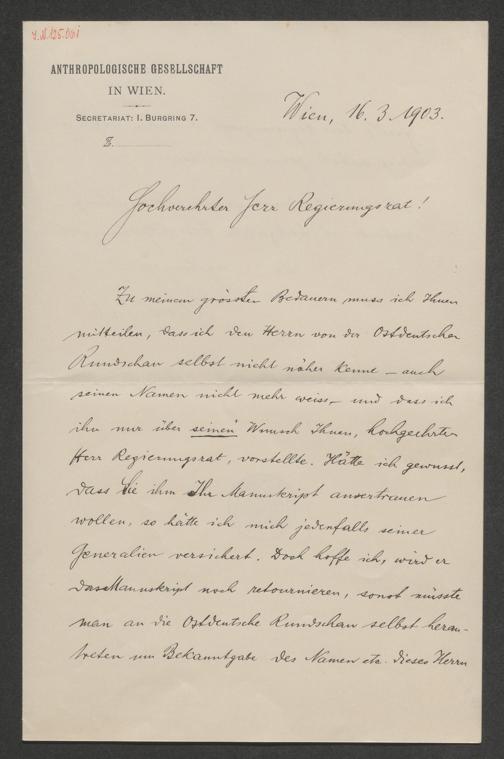 J.N. 125.001
ANTHROPOLOGISCHE GESELLSCHAFT
IN WIEN.
SECRETARIAT: I. BURGRING 7.
Z.
Wien, 16. 3. 1903.
Hochverehrter Herr Regierungsrat!
Zu meinem grössten Bedauern muss ich Ihnen
mitteilen, dass ich den Herrn von der Ostdeutschen
Rundschau selbst nicht näher kenne – auch
seinen Namen nicht mehr weiss – und dass ich
ihn nur über seinen Wunsch Ihnen, hochgeehrter
Herr Regierungsrat, vorstellte. Hätte ich gewusst,
dass Sie ihm Ihr Manuskript anvertrauen
wollen, so hätte ich mich jedenfalls seiner
Generalien versichert. Doch hoffe ich, wird er
das Manuskript noch retournieren, sonst müsste
man an die Ostdeutsche Rundschau selbst heran-
treten um Bekanntgabe des Namen etc. dieses Herrn